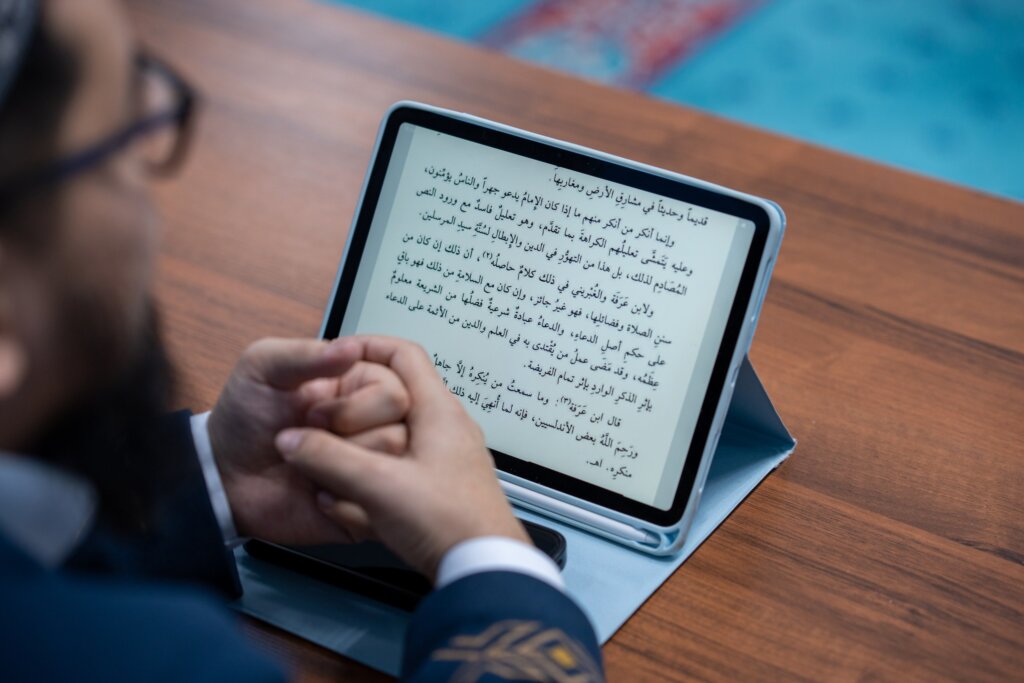 قديماً وحديثاً في مشارقِ الأرضِ ومغاربِها.
وإنما أنكر من أنكر منهم ما إذا كان الإمامُ يدعو جهراً والناسُ يؤمِّنون،
وعليه يَتَمشَّى تعليلُهم الكراهةَ بما تقدَّم، وهو تعليلٌ فاسدٌ مع ورود النص
المُصَادِمِ لذلك، بل هذا من التهوُّرِ في الدين والإبطالِ لسُنَّةِ سيدِ المرسلين.
ولابن عَرَفَة والغُبْريني في ذلك كلامٌ حاصلُه(٢)، أن ذلك إن كان من
سننِ الصلاة وفضائلِها، فهو غيرُ جائز، وإن كان مع السلامةِ من ذلك فهو باقٍ
على حكمِ أصلِ الدعاءِ، والدعاءُ عبادةٌ شرعيةٌ فضلُها من الشريعة معلومٌ
عِظَمُه، وقد مَضَى عملُ من يُقْتدى به في العلم والدين من الأئمة على الدعاء
بإثْرِ الذكرِ الواردِ بإثر تمام الفريضة.
قال ابن عَرَفَة(٣): وما سمعتُ من يُنكِرُه إلَّا جاهلٌ
ورَحِمَ اللَّهُ بعض الأندلسيين، فإنه لما أُنْهِيَ إليه ذلك
منكرِه. اهـ.